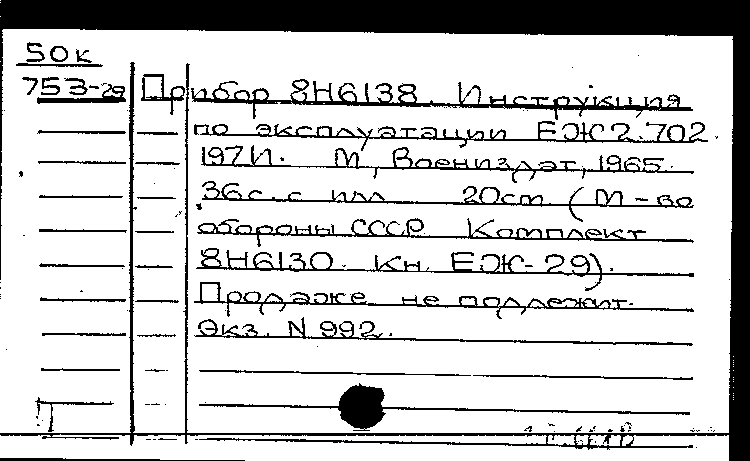 50к
753-29 Прибор 8Н6138. Инструкция
по эксплуатации ЕЖ2.702.
197И. М, Воениздат, 1965.
36с. с илл 20см (М-во
обороны СССР Комплект
8Н6130. Кн. ЕЖ-29).
Продаже не подлежит.
Экз. N 992.
П